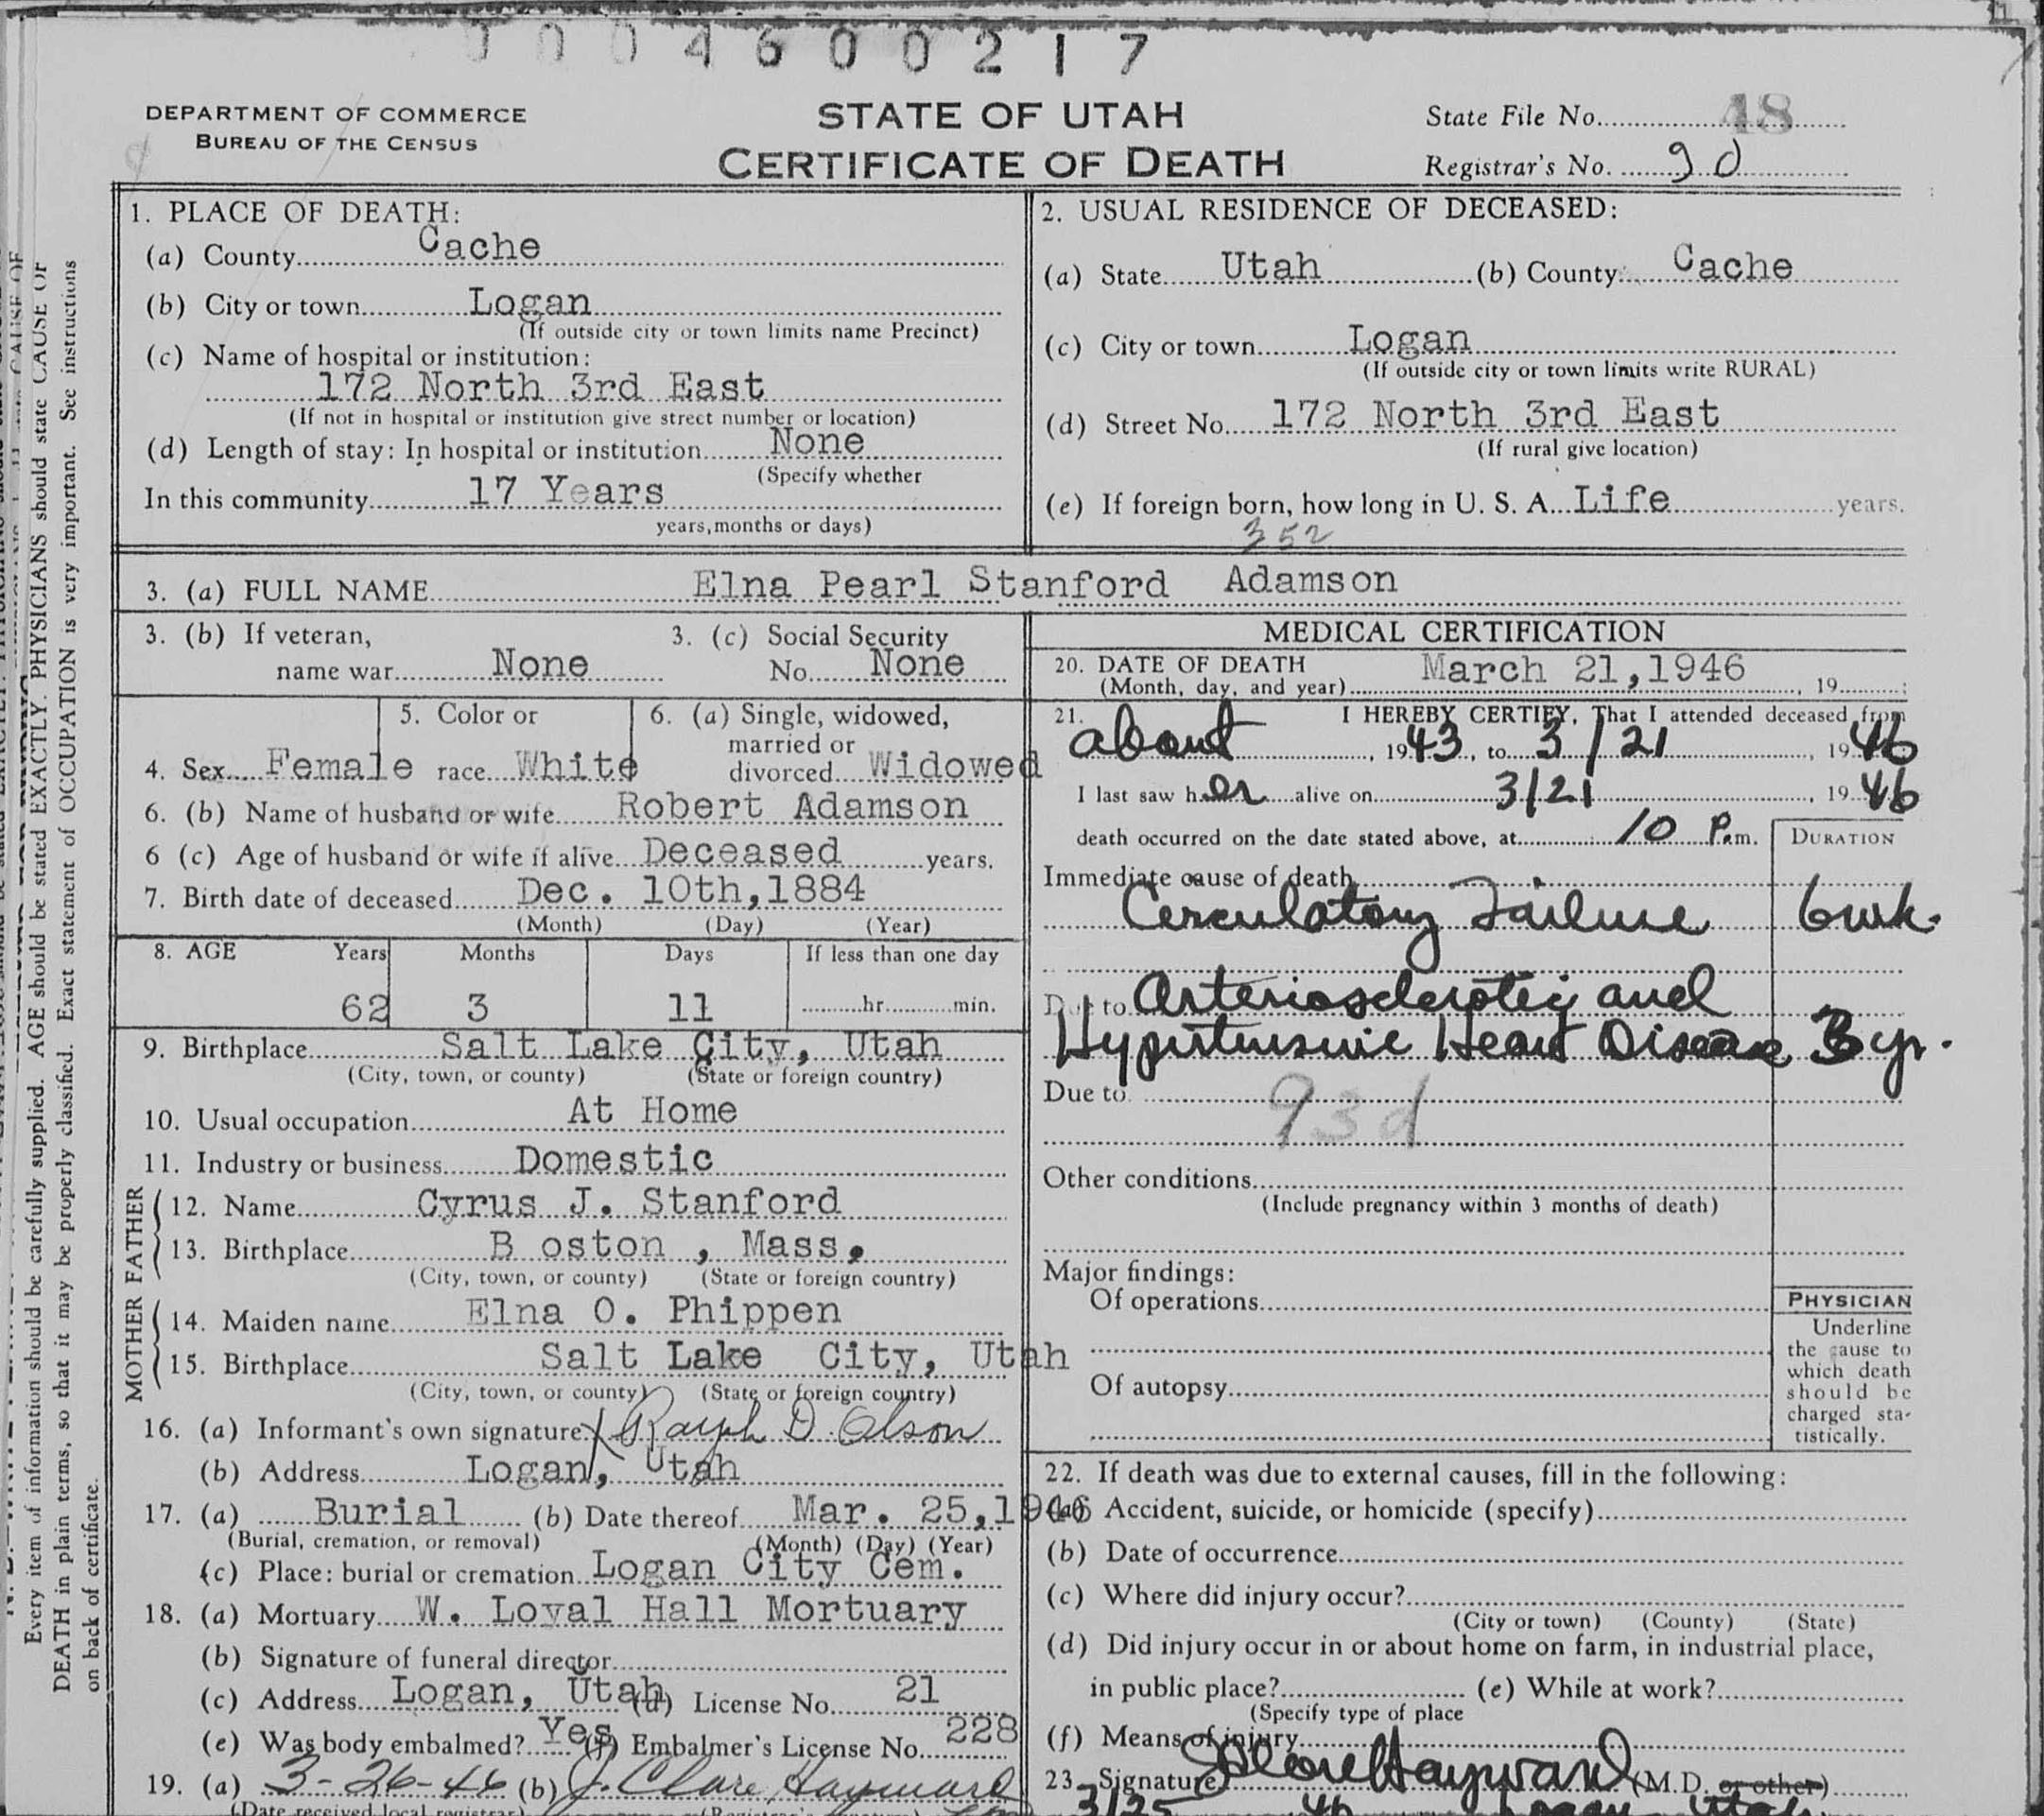 0004600217
DEPARTMENT OF COMMERCE
BUREAU OF THE CENSUS
STATE OF UTAH
CERTIFICATE OF DEATH
State File No. 48
Registrar's No. 90
1. PLACE OF DEATH:
(a) County Cache
(b) City or town Logan
(If outside city or town limits name Precinct)
(c) Name of hospital or institution:
172 North 3rd East
(If not in hospital or institution give street number or location)
(d) Length of stay: In hospital or institution None
(Specify whether
In this community 17 Years
years, months or days)
2. USUAL RESIDENCE OF DECEASED:
(a) State Utah (b) County Cache
(c) City or town Logan
(If outside city or town limits write RURAL)
(d) Street No. 172 North 3rd East
(If rural give location)
(e) If foreign born, how long in U. S. A. Life years.
352
3. (a) FULL NAME Elna Pearl Stanford Adamson
3. (b) If veteran, 3. (c) Social Security
name war None No. None
5. Color or 6. (a) Single, widowed,
married or
4. Sex Female race White divorced Widowed
6. (b) Name of husband or wife Robert Adamson
6 (c) Age of husband or wife if alive Deceased years.
7. Birth date of deceased Dec. 10th, 1884
(Month) (Day) (Year)
8. AGE Years Months Days If less than one day
62 3 11 hr. min.
9. Birthplace Salt Lake City, Utah
(City, town, or county) (State or foreign country)
10. Usual occupation At Home
11. Industry or business Domestic
FATHER
12. Name Cyrus J. Stanford
13. Birthplace B oston , Mass.
(City, town, or county) (State or foreign country)
MOTHER
14. Maiden name Elna O. Phippen
15. Birthplace Salt Lake City, Utah
(City, town, or county) (State or foreign country)
16. (a) Informant's own signature X Ralph D. Olson
(b) Address Logan, Utah
17. (a) Burial (b) Date thereof Mar. 25, 1946
(Burial, cremation, or removal) (Month) (Day) (Year)
(c) Place: burial or cremation Logan City Cem.
18. (a) Mortuary W. Loyal Hall Mortuary
(b) Signature of funeral director
(c) Address Logan, Utah (d) License No. 21
(e) Was body embalmed? Yes (f) Embalmer's License No. 228
19. (a) 3-26-46 (b) J. Clare Hayward
(Date received local registrar)
MEDICAL CERTIFICATION
20. DATE OF DEATH March 21, 1946
(Month, day, and year) , 19 ;
21. I HEREBY CERTIFY, That I attended deceased from
about , 1943, to 3/21 , 1946
I last saw her alive on 3/21 , 1946
death occurred on the date stated above, at 10 P.m.
DURATION
Immediate cause of death
Cerculatory Failure 6 wk.
Due to Arteriosclerotic and
Hypertensive Heart Disease 3 yr.
Due to
93d
Other conditions
(Include pregnancy within 3 months of death)
Major findings:
Of operations
Of autopsy
PHYSICIAN
Underline
the cause to
which death
should be
charged sta-
tistically.
22. If death was due to external causes, fill in the following:
(a) Accident, suicide, or homicide (specify)
(b) Date of occurrence
(c) Where did injury occur?
(City or town) (County) (State)
(d) Did injury occur in or about home on farm, in industrial place,
in public place? (e) While at work?
(Specify type of place
(f) Means of injury
23. Signature J Clare Hayward (M.D. or other)
3/25 46 Logan Utah
Every item of information should be carefully supplied. AGE should be stated EXACTLY. PHYSICIANS should state CAUSE OF
DEATH in plain terms, so that it may be properly classified. Exact statement of OCCUPATION is very important. See instructions
on back of certificate.